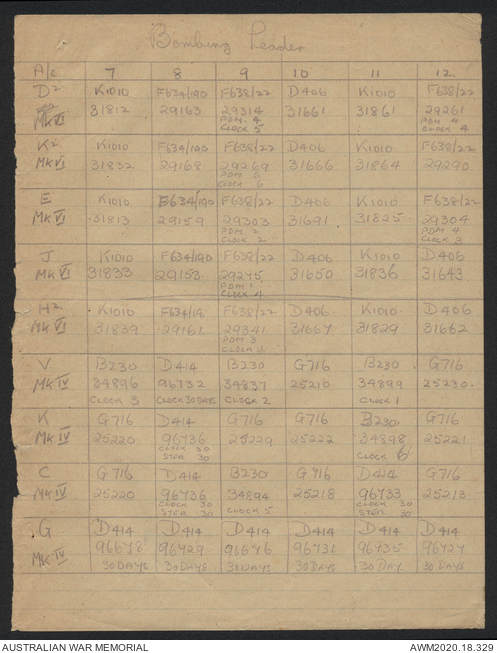 Bombing Leader
A/c 7 8 9 10 11 12.
D² K1010 F634/190 F638/22 D406 K1010 F638/22
Mk VI 31812 29163 29314 31661 31861 29261
PDM. 4 PDM 4
CLOCK 5 CLOCK 4
K² K1010 F634/190 F638/22 D406 K1010 F638/22
Mk VI 31832 29168 29269 31666 31864 29290
PDM 6
CLOCK 6
E K1010 F634/190 F638/22 D406 K1010 F638/22
Mk VI 31813 29159 29303 31691 31825 29304
PDM 2 PDM 4
CLOCK 2 CLOCK 3
J K1010 F634/190 F638/22 D406 K1010 D406
Mk VI 31833 29153 29275 31650 31836 31643
PDM 1
CLOCK 4
H² K1010 F634/19 F638/22 D406 K1010 D406
Mk VI 31839 29161 29341 31667 31829 31662
PDM 3
CLOCK
V B230 D414 B230 G716 B230 G716
Mk IV 34896 96732 34837 25210 34899 25230.
CLOCK 3 CLOCK 30 DAYS CLOCK 2 CLOCK 1
K G716 D414 G716 G716 B230 G716
Mk IV 25220 96736 25229 25222 34898 25221
CLOCK 30 CLOCK 6
STER 30
C G716 D414 B230 G716 D414 G716
Mk IV 25220 96736 34894 25218 96733 25213
CLOCK 30 CLOCK 5 CLOCK 30
STER 30 STER 30
G D414 D414 D414 D414 D414 D414
Mk IV 96678 96729 96676 96731 96735 96727
30 DAYS 30 DAYS 30 DAYS 30 DAYS 30 DAY 30 DAYS
AUSTRALIAN WAR MEMORIAL AWM2020.18.329